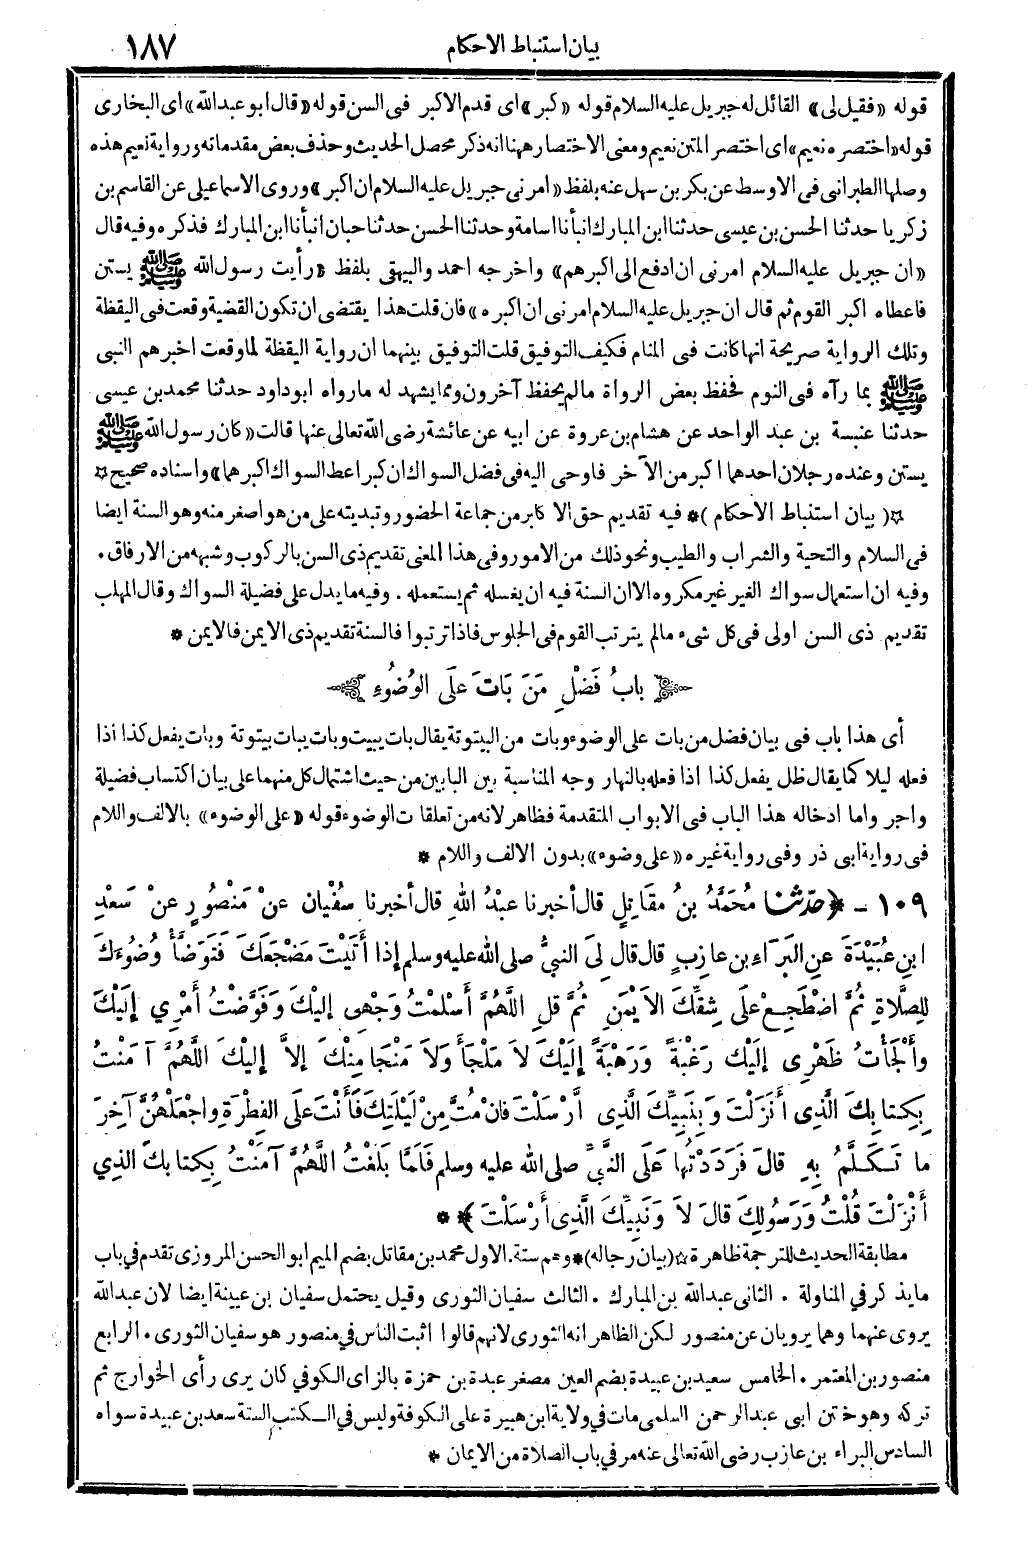 بيان استنباط الاحكام ١٨٧
قوله «فقيل لى» القائل له جبريل عليه السلام قوله «كبر» اى قدم الاكبر فى السن قوله «قال ابو عبد الله» اى البخارى
قوله «اختصره نعيم» اى اختصر المتن نعيم ومعنى الاختصار ههنا انه ذكر محصل الحديث وحذف بعض مقدماته ورواية نعيم هذه
وصلها الطبرانى فى الاوسط عن بكر بن سهل عنه بلفظ «امرنى جبريل عليه السلام ان اكبر» وروى الاسماعيلى عن القاسم بن
زكريا حدثنا الحسن بن عيسى حدثنا ابن المبارك انبأنا اسامة وحدثنا الحسن حدثنا حبان انبأنا ابن المبارك فذكره وفيه قال
«ان جبريل عليه السلام امرنى ان ادفع الى اكبرهم» واخرجه احمد والبيهقى بلفظ «رأيت رسول الله ﷺ يستن
فاعطاه اكبر القوم ثم قال ان جبريل عليه السلام امرنى ان اكبر» فان قلت هذا يقتضى ان تكون القضية وقعت فى اليقظة
وتلك الرواية صريحة انها كانت فى المنام فكيف التوفيق قلت التوفيق بينهما ان رواية اليقظة لما وقعت اخبرهم النبى
ﷺ بما رآه فى النوم فحفظ بعض الرواة مالم يحفظ آخرون ومما يشهد له مارواه ابو داود حدثنا محمد بن عيسى
حدثنا عنبسة بن عبد الواحد عن هشام بن عروة عن ابيه عن عائشة رضى الله تعالى عنها قالت «كان رسول الله ﷺ
يستن وعنده رجلان احدهما اكبر من الآخر فاوحى اليه فى فضل السواك ان كبر اعط السواك اكبرهما» واسناده صحيح ☆
☆( بيان استنباط الاحكام )* فيه تقديم حق الاكابر من جماعة الحضور وتبديته على من هو اصغر منه وهو السنة ايضا
فى السلام والتحية والشراب والطيب ونحو ذلك من الامور وفى هذا المعنى تقديم ذى السن بالركوب وشبهه من الارفاق .
وفيه ان استعمال سواك الغير غير مكروه الا ان السنة فيه ان يغسله ثم يستعمله . وفيه ما يدل على فضيلة السواك وقال المهلب
تقديم ذى السن اولى فى كل شىء مالم يترتب القوم فى الجلوس فاذا ترتبوا فالسنة تقديم ذى الايمن فالايمن *
بابُ فَضْلِ مَنَ بَاتَ عَلَى الوُضُوءِ
أى هذا باب فى بيان فضل من بات على الوضوء وبات من البيتوتة يقال بات يبيت وبات يبات بيتوتة وبات يفعل كذا اذا
فعله ليلا كما يقال ظل يفعل كذا اذا فعله بالنهار وجه المناسبة بين البابين من حيث اشتمال كل منهما على بيان اكتساب فضيلة
واجر واما ادخاله هذا الباب فى الابواب المتقدمة فظاهر لانه من تعلقات الوضوء قوله «على الوضوء» بالالف واللام
فى رواية ابى ذر وفى رواية غيره «على وضوء» بدون الالف واللام *
١٠٩ - ﴿حَدَّثَنَا مُحَمَّدُ بنُ مقَاتِلٍ قال أخبرنا عبْدُ اللهِ قال أخبرنا سفْيان عنْ مَنْصُورٍ عنْ سَعْدِ
ابنِ عُبَيْدَةَ عنِ البَرَاءِ بن عازِبٍ قال قال لِىَ النبىُّ صلى الله عليه وسلم إذا أَتَيْتَ مَضْجَعَكَ فَتَوَضَّأْ وُضُوءَكَ
لِلصَّلاةِ ثُمَّ اضْطَجِعْ علَى شِقِّكَ الأَيْمَنِ ثُمَّ قلِ اللَّهُمَّ أسْلَمْتُ وَجْهِى إليْكَ وَفَوَّضْتُ أمْرِي إلَيْكَ
وأَلْجَأْتُ ظَهْرِى إلَيْكَ رَغْبةً وَرَهْبَةً إلَيْكَ لاَ مَلْجَأَ وَلاَ مَنْجَا مِنْكَ إلاَّ إليْكَ اللَّهُمَّ آمَنْتُ
بِكِتابِكَ الَّذِى أنزَلْتَ وَبِنَبِيِّكَ الَّذِى أَرْسَلْتَ فانْ مُتَّ مِنْ لَيْلَتِكَ فَأَنْتَ علَى الفِطْرَةِ واجْعَلْهُنَّ آخِرَ
ما تَكَلَّمُ بِهِ قالَ فَرَدَدْتُها عَلَى النَّبِيِّ صلى الله عليه وسلم فَلَمَّا بَلَغْتُ اللَّهُمَّ آمَنْتُ بِكِتابِكَ الذِي
أَنْزَلْتَ قُلْتُ وَرَسُولِكَ قالَ لاَ وَنَبِيِّكَ الَّذِى أَرْسَلْتَ﴾ *
مطابقة الحديث للترجمة ظاهرة ☆ (بيان رجاله)* وهم ستة. الاول محمد بن مقاتل بضم الميم ابو الحسن المروزى تقدم فى باب
مايذكر في المناولة . الثانى عبد الله بن المبارك . الثالث سفيان الثورى وقيل يحتمل سفيان بن عيينة ايضا لان عبد الله
يروى عنهما وهما يرويان عن منصور لكن الظاهر انه الثورى لانهم قالوا اثبت الناس في منصور هو سفيان الثورى . الرابع
منصور بن المعتمر . الخامس سعيد بن عبيدة بضم العين مصغر عبدة بن حمزة بالزاى الكوفي كان يرى رأى الخوارج ثم
تركه وهو ختن ابى عبد الرحمن السلمى مات في ولاية ابن هبيرة على الكوفة وليس في الكتب الستة سعد بن عبيدة سواه
السادس البراء بن عازب رضى الله تعالى عنه مر في باب الصلاة من الايمان *